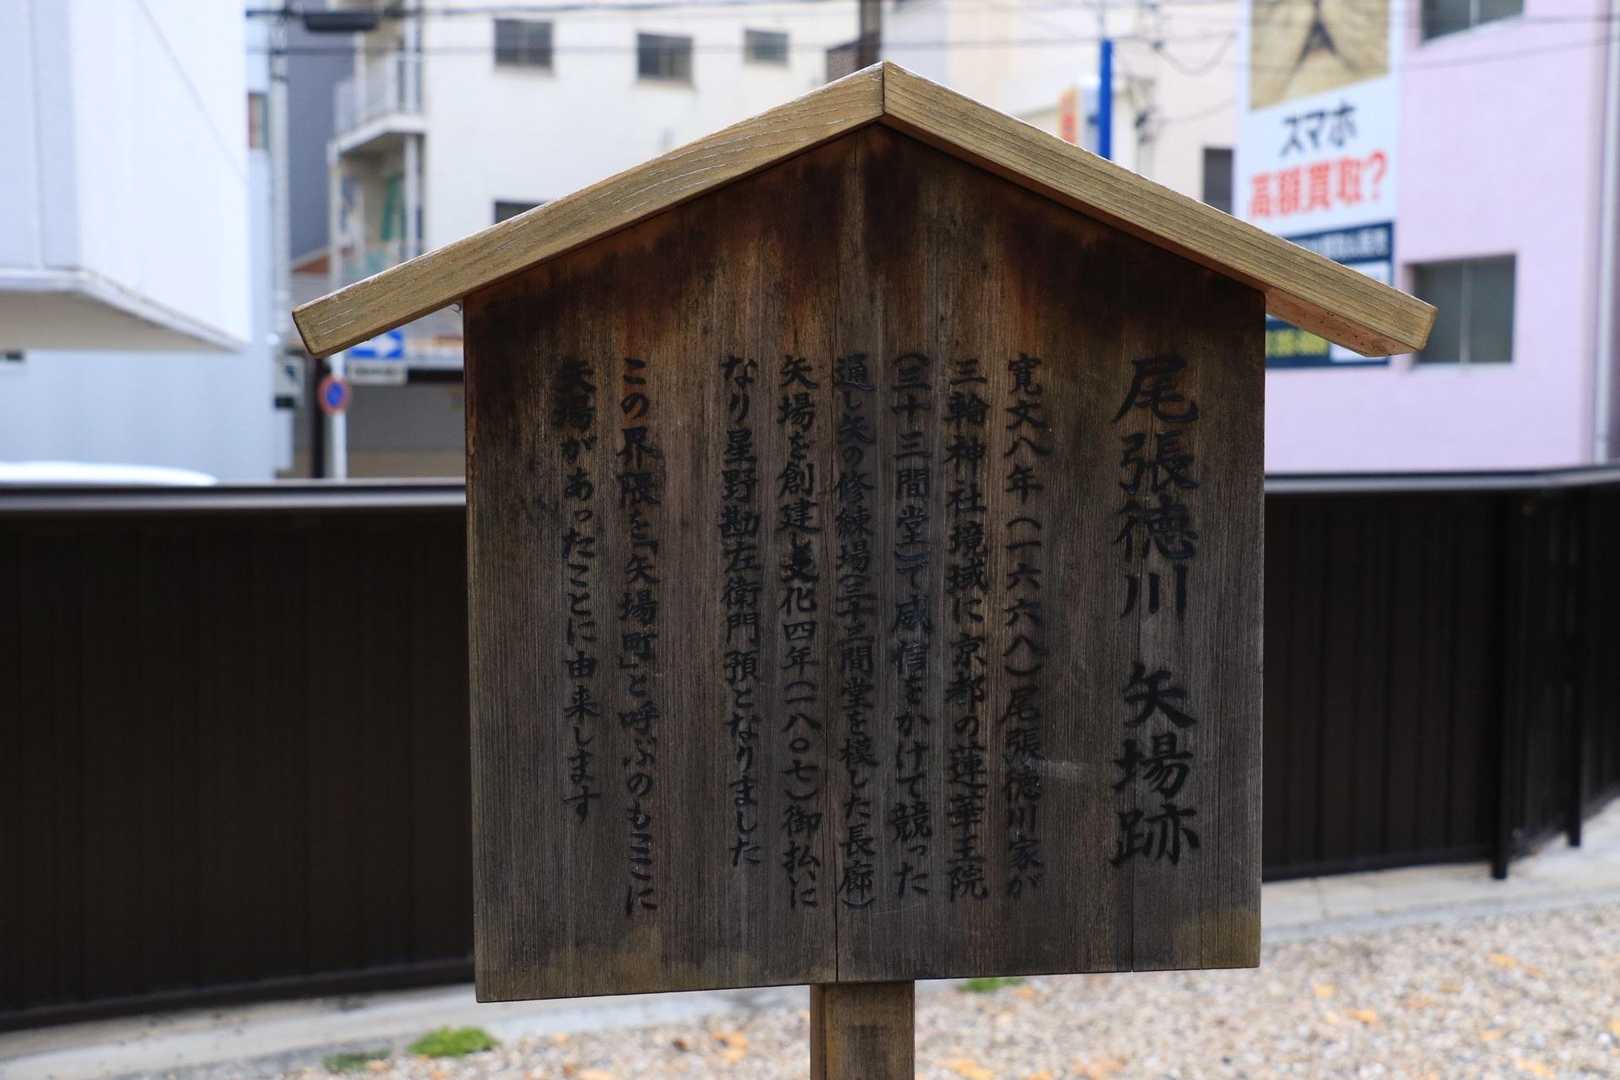 尾張徳川 矢場跡
寛文八年(一六六八)尾張徳川家が
三輪神社境域に京都の蓮華王院
(三十三間堂)で威信をかけて競った
通し矢の修練場(三十三間堂を模した長廊)
矢場を創建し文化四年(一八〇七)御払いに
なり星野勘左衛門預となりました
この界隈を「矢場町」と呼ぶのもここに
矢場があったことに由来します
スマホ
高額買取?